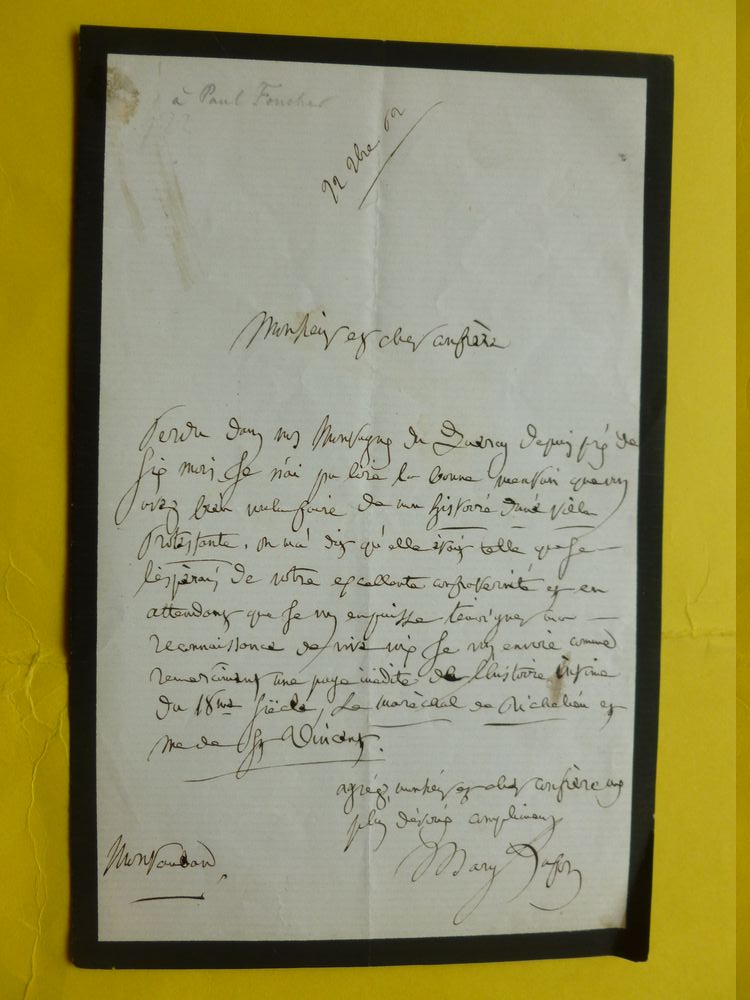 à Paul Foucher
22 9bre 62
Monsieur et cher confrère
Perdu dans nos Montagnes du Quercy depuis près de
six mois, je n'ai pu lire la bonne mention que vous
avez bien voulu faire de mon histoire d'une ville
Protestante. on m'a dit qu'elle était telle que je
l'espérais de votre excellente confraternité et en
attendant que je vous en puisse témoigner ma
reconnaissance de vive voix je vous envoie comme
remerciment une page inédite de l'histoire intime
du 18me siècle, Le maréchal de Richelieu et
me de St Vincent.
agréez, monsieur et cher confrère mes
plus dévoués compliments
Mary Lafon
Montauban